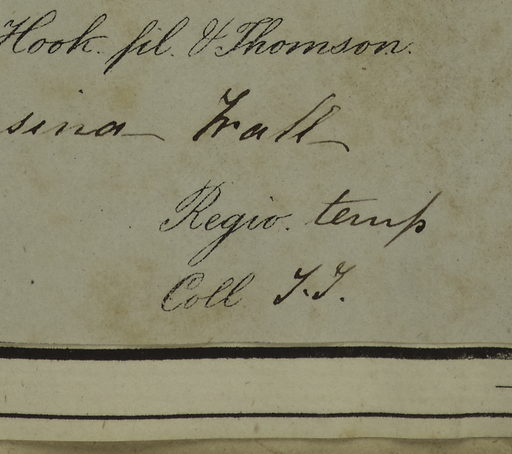 Hook. fil. & Thomson.
sina Wall
Regio. temp
Coll T.T.